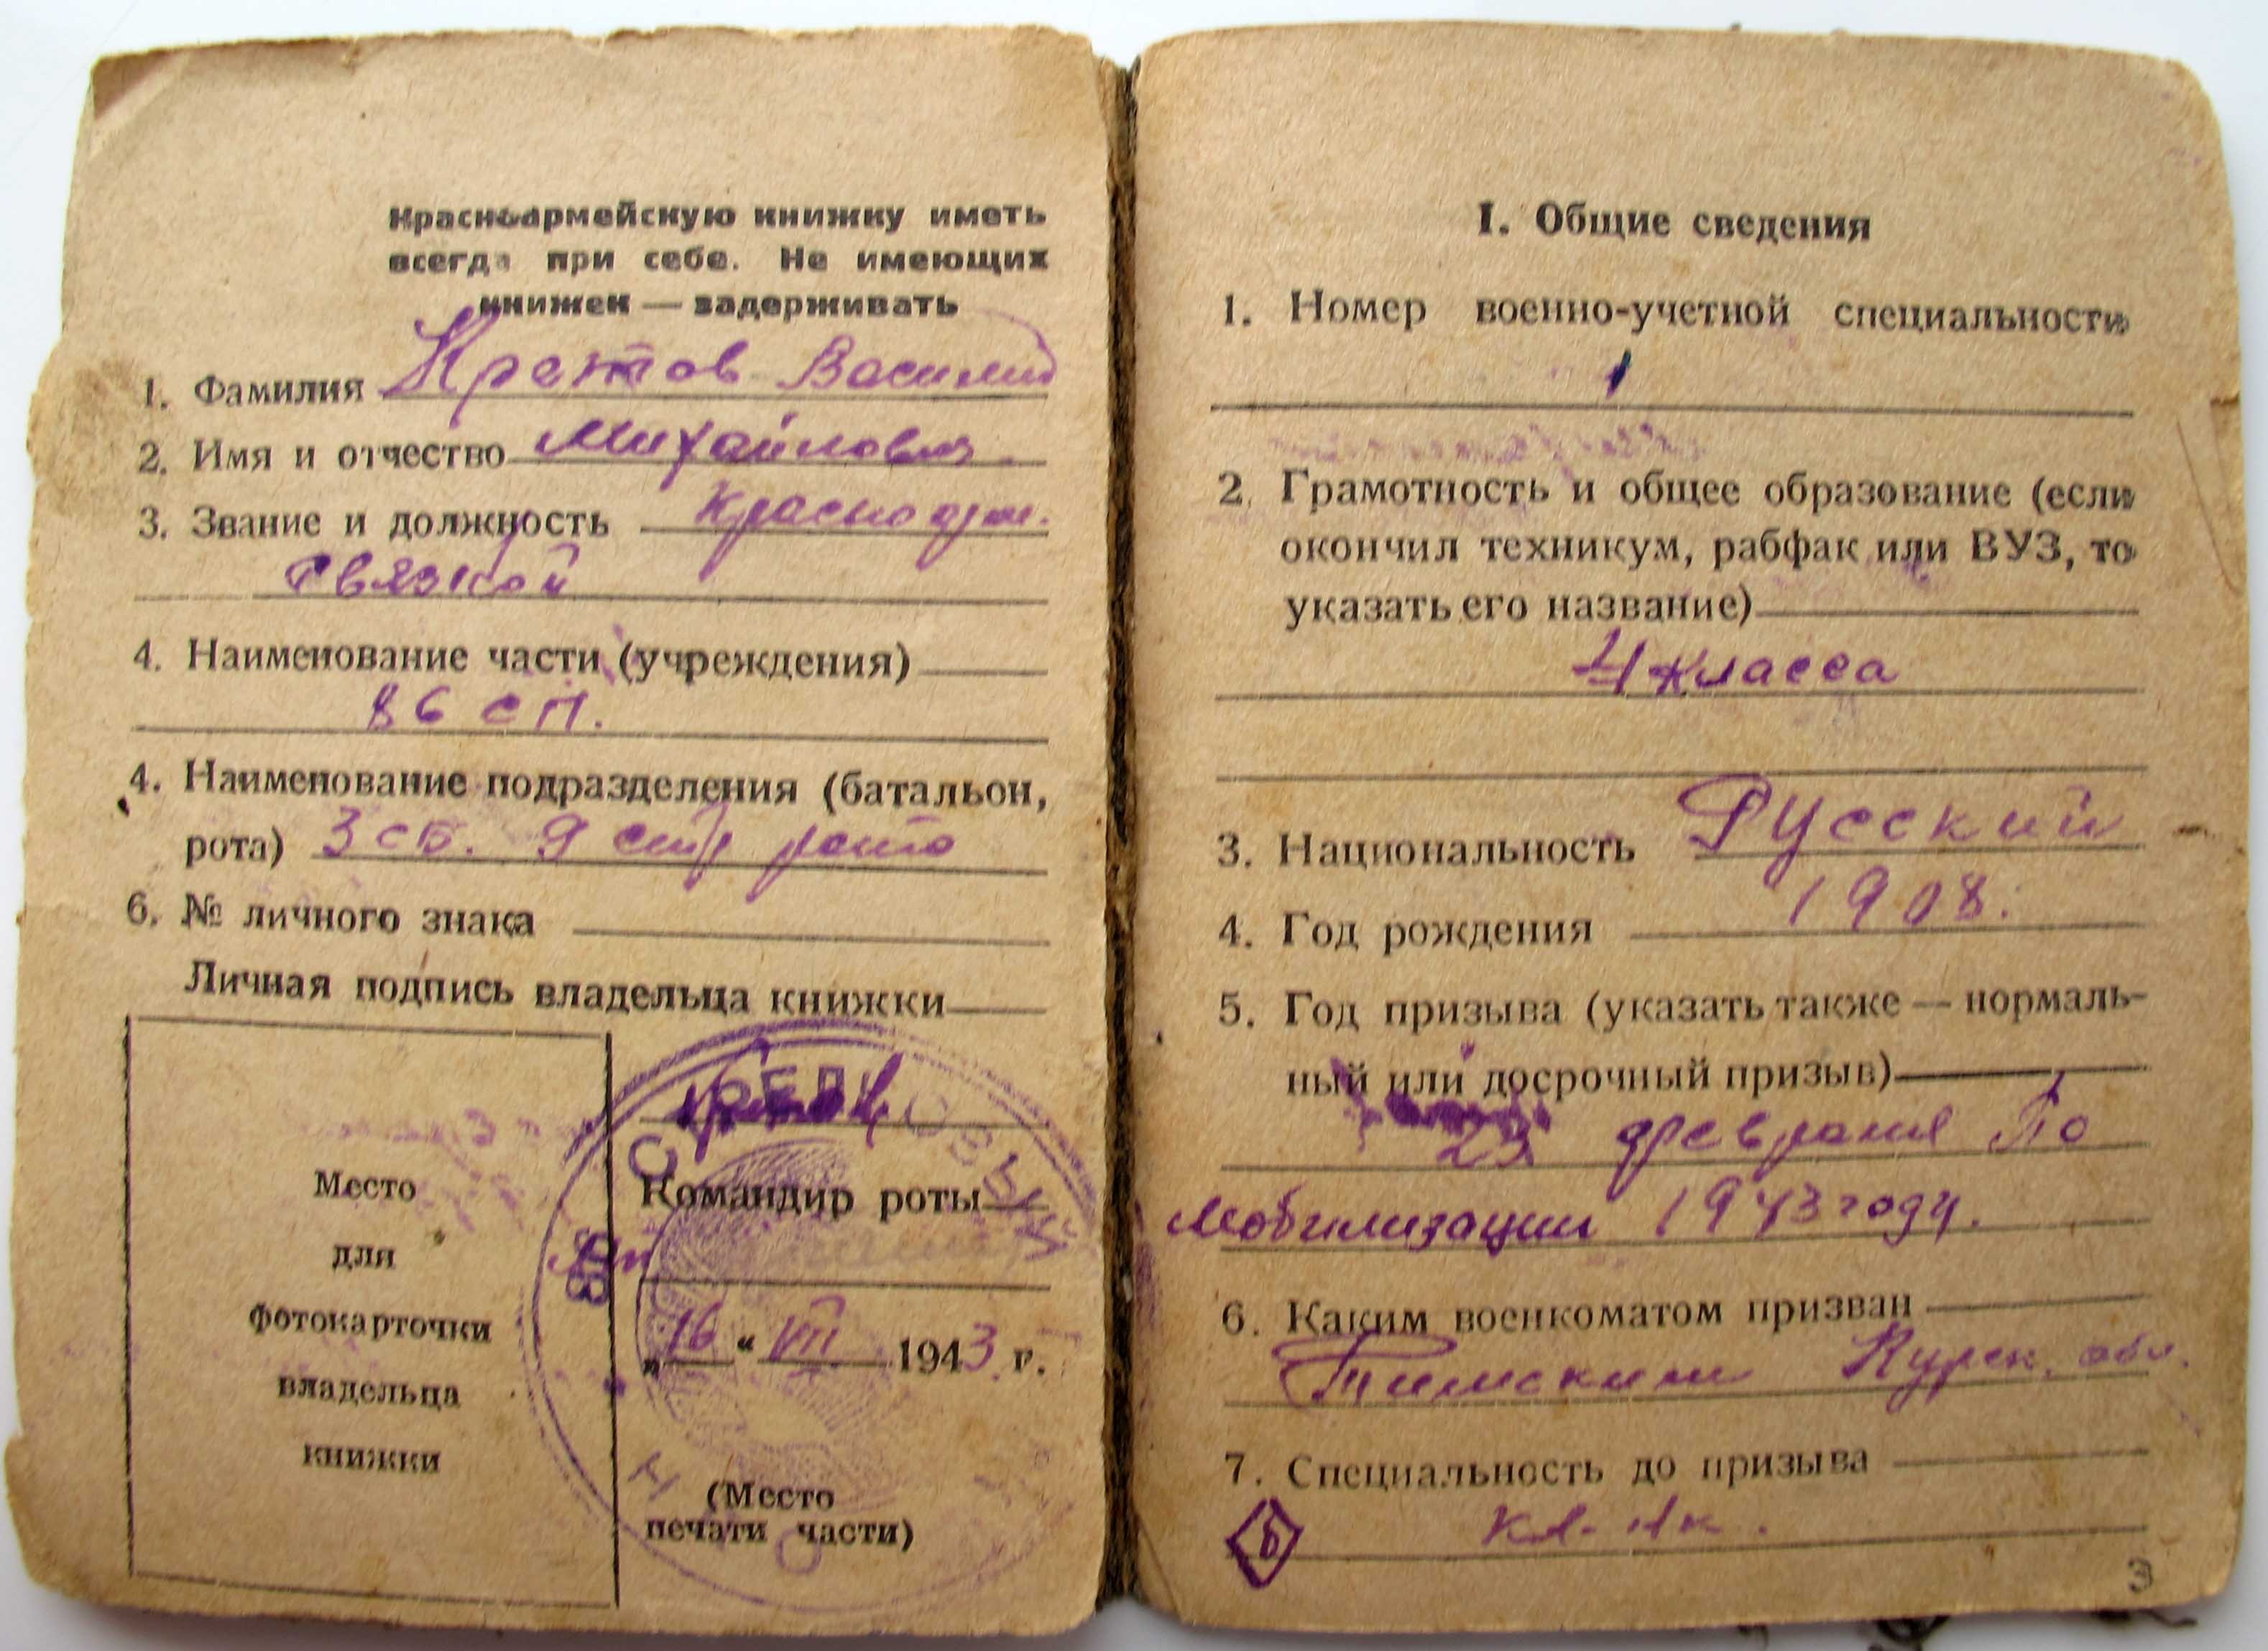 Красноармейскую книжку иметь
всегда при себе. Не имеющих
книжек — задерживать
1. Фамилия Кретов Василий
2. Имя и отчество Михайлович
3. Звание и должность Красноарм.
связной
4. Наименование части (учреждения)
86 сп.
4. Наименование подразделения (батальон,
рота) 3 сб. 9 стр рота
6. № личного знака
Личная подпись владельца книжки
СТРЕЛКОВЫЙ
Командир роты
86
„16“ VII 1943 г.
Место
для
фотокарточки
владельца
книжки
(Место
печати части)
I. Общие сведения
1. Номер военно-учетной специальности
1
2. Грамотность и общее образование (если
окончил техникум, рабфак или ВУЗ, то
указать его название)
4 класса
3. Национальность Русский
4. Год рождения 1908.
5. Год призыва (указать также — нормаль-
ный или досрочный призыв)
23 февраля по
мобилизации 1943 году.
6. Каким военкоматом призван
Тимским Курск. обл.
7. Специальность до призыва
Б
3